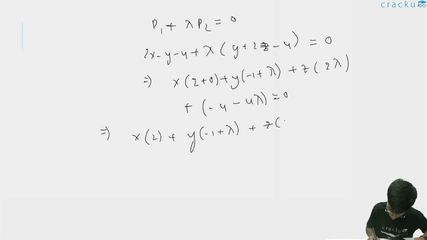 cracku
P₁ + λP₂ = 0
2x-y-4 + λ(y+2z-4) = 0
⇒ x(2+0)+y(-1+λ) + z(2λ)
+ (-4-4λ)=0
⇒ x(2) + y(-1+λ) + z(
cracku